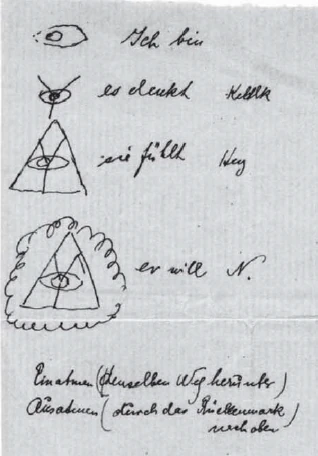 Ich bin
es denkt Kehlk
sie fühlt Herz
er will N.
Einatmen (denselben Weg herunter)
Ausatmen (durch das Rückenmark
nach oben